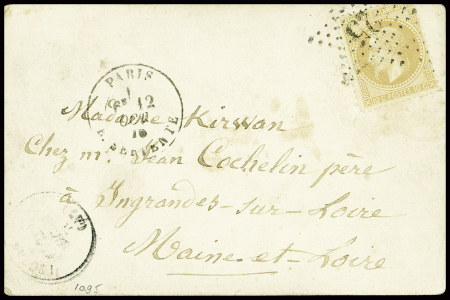 PARIS
12
R. SERPENTE
Madame Kirwan
Chez m. Jean Cochelin père
à Ingrandes-sur-Loire
Maine-et-Loire
1095